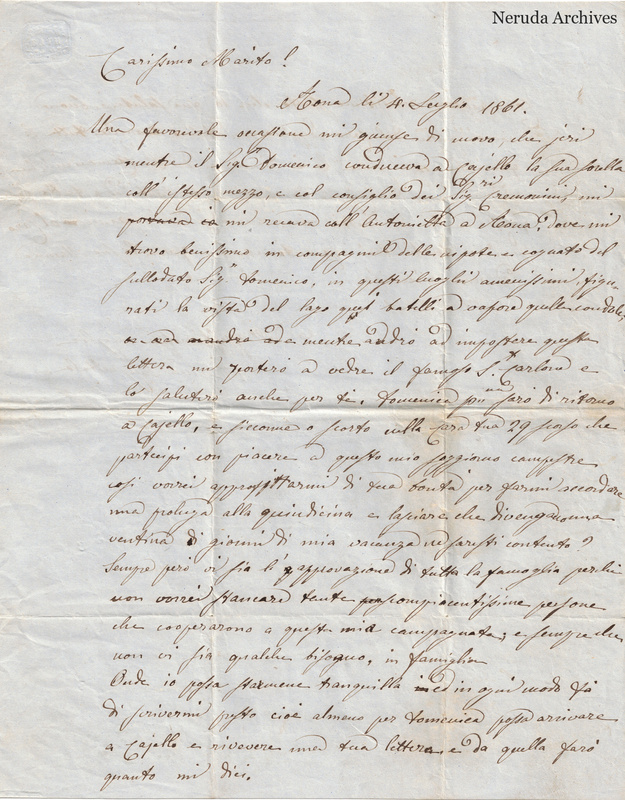 Neruda Archives
Carissimo Marito!
Arona li 4. Luglio 1861.
Una favorevole occasione mi giunse di nuovo, che jeri
mentre il Sigr Domenico conduceva a Cajello la sua sorella
coll'istesso mezzo, e col consiglio dei Sigri Cremonini, mi
mi recava coll'Antonietta a Arona, dove mi
trovo benissimo in compagnia delle nipote e cognate del
sullodato Sigr Domenico, in questi luoghi amenissimi, figu-
rati la vista del lago quei batelli a vapore quelle
mentre andrò ad impostare questa
lettera mi porterò a vedre il famoso S. Carlone e
lo saluterò anche per te. Domenica sarò di ritorno
a Cajello, e siccome o scorto nella Cara tua 29 scorso che
partecipi con piacere a questo mio soggiorno campestre
così vorrei approffittarmi di tua bontà per farmi accordare
una proluga alla quindicina e lasciare che divenga una
ventina di giorni di mia vacanza ne saresti contento?
Sempre però vi sia l'approvazione di tutta la famoglia perchè
non vorrei stancare tante compiacentissime persone
che cooperarono a questa mia campagnata, e sempre che
non vi sia qualche bisogno, in famiglia
Onde io possa starmene tranquilla ed in ogni modo fa
di scrivermi presto cioè almeno per Domenica possa arrivare
a Cajello e ricevere una tua lettera e da quella farò
quanto mi dici.